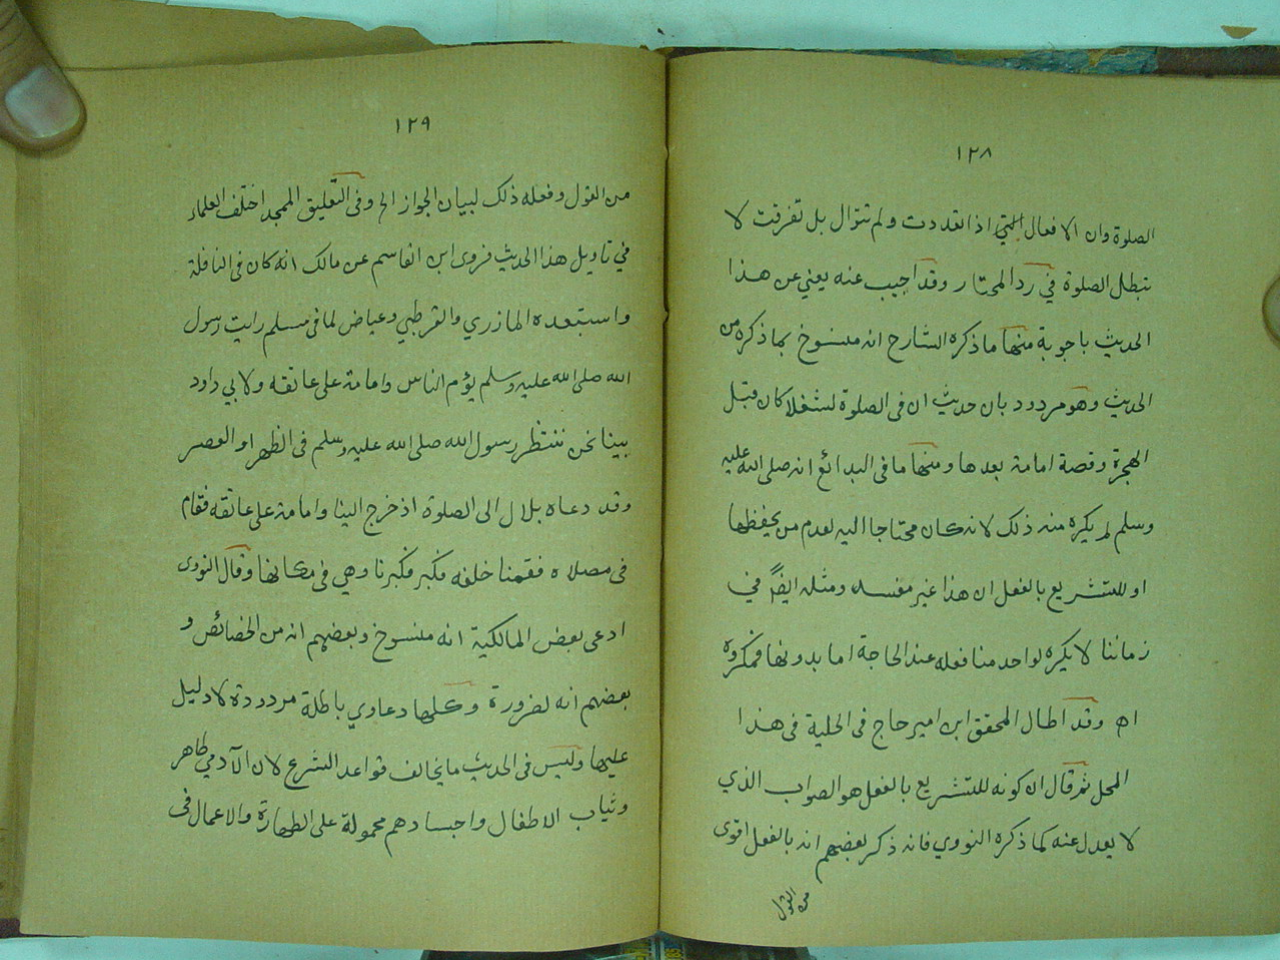 ١٢٨
الصلوة وان الافعال اللتي اذا تعددت ولم تتوال بل تفرقت لا
تبطل الصلوة في رد المحتار وقد اجيب عنه يعني عن هذا
الحديث باجوبة منها ما ذكره الشارح انه منسوخ بما ذكره من
الحديث وهو مردود بان حديث ان فى الصلوة لشغلا كان قبل
الهجرة وقصة امامة بعدها ومنها ما فى البدائع انه صلى الله عليه
وسلم لم يكره منه ذلك لانه كان محتاجا اليه لعدم من يحفظها
او للتشريع بالفعل ان هذا غير مفسد ومثله ايضًا في
زماننا لا يكره لواحد منا فعله عند الحاجة اما بدونها فمكروه
اه وقد اطال المحقق ابن امير حاج فى الحلية فى هذا
المحل ثم قال ان كونه للتشريع بالفعل هو الصواب الذي
لا يعدل عنه كما ذكره النووي فانه ذكر بعضهم انه بالفعل اقوى
من القول
١٢٩
من القول وفعله ذلك لبيان الجواز الخ وفى التعليق الممجد اختلف العلماء
في تاويل هذا الحديث فروى ابن القاسم عن مالك انه كان فى النافلة
واستبعده المازري والقرطبي وعياض لما فى مسلم رايت رسول
الله صلى الله عليه وسلم يؤم الناس وامامة على عاتقه ولابي داود
بينا نحن ننتظر رسول الله صلى الله عليه وسلم فى الظهر او العصر
وقد دعاه بلال الى الصلوة اذ خرج الينا وامامة على عاتقه فقام
فى مصلاه فقمنا خلفه فكبر فكبرنا وهي فى مكانها وقال النووى
ادعى بعض المالكية انه منسوخ وبعضهم انه من الخصائص و
بعضهم انه لضرورة وكلها دعاوي باطلة مردودة لا دليل
عليها وليس فى الحديث ما يخالف قواعد الشرع لان الآدمي طاهر
وثياب الاطفال واجسادهم محمولة على الطهارة والاعمال فى